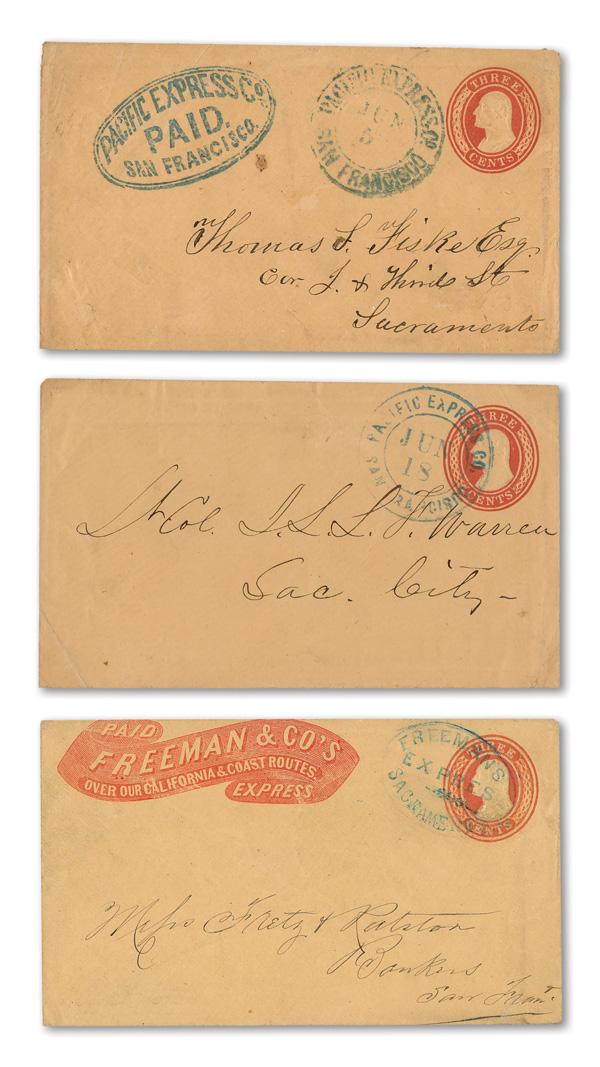 PACIFIC EXPRESS Co
PAID.
SAN FRANCISCO.
PACIFIC EXPRESS Co
JUN
5
SAN FRANCISCO
THREE
CENTS
Thomas S. Fiske Esq.
Cor. J. & Third St
Sacramento
PACIFIC EXPRESS CO.
JUN
18
SAN FRANCISCO
THREE
CENTS
Col. J. L. L. F. Warren
Sac. City-
PAID
FREEMAN & CO'S
OVER OUR CALIFORNIA & COAST ROUTES
EXPRESS
FREEMANS
EXPRES
SACRAME
THREE
CENTS
Mess Fretz & Ralston
Bankers
San Fran.